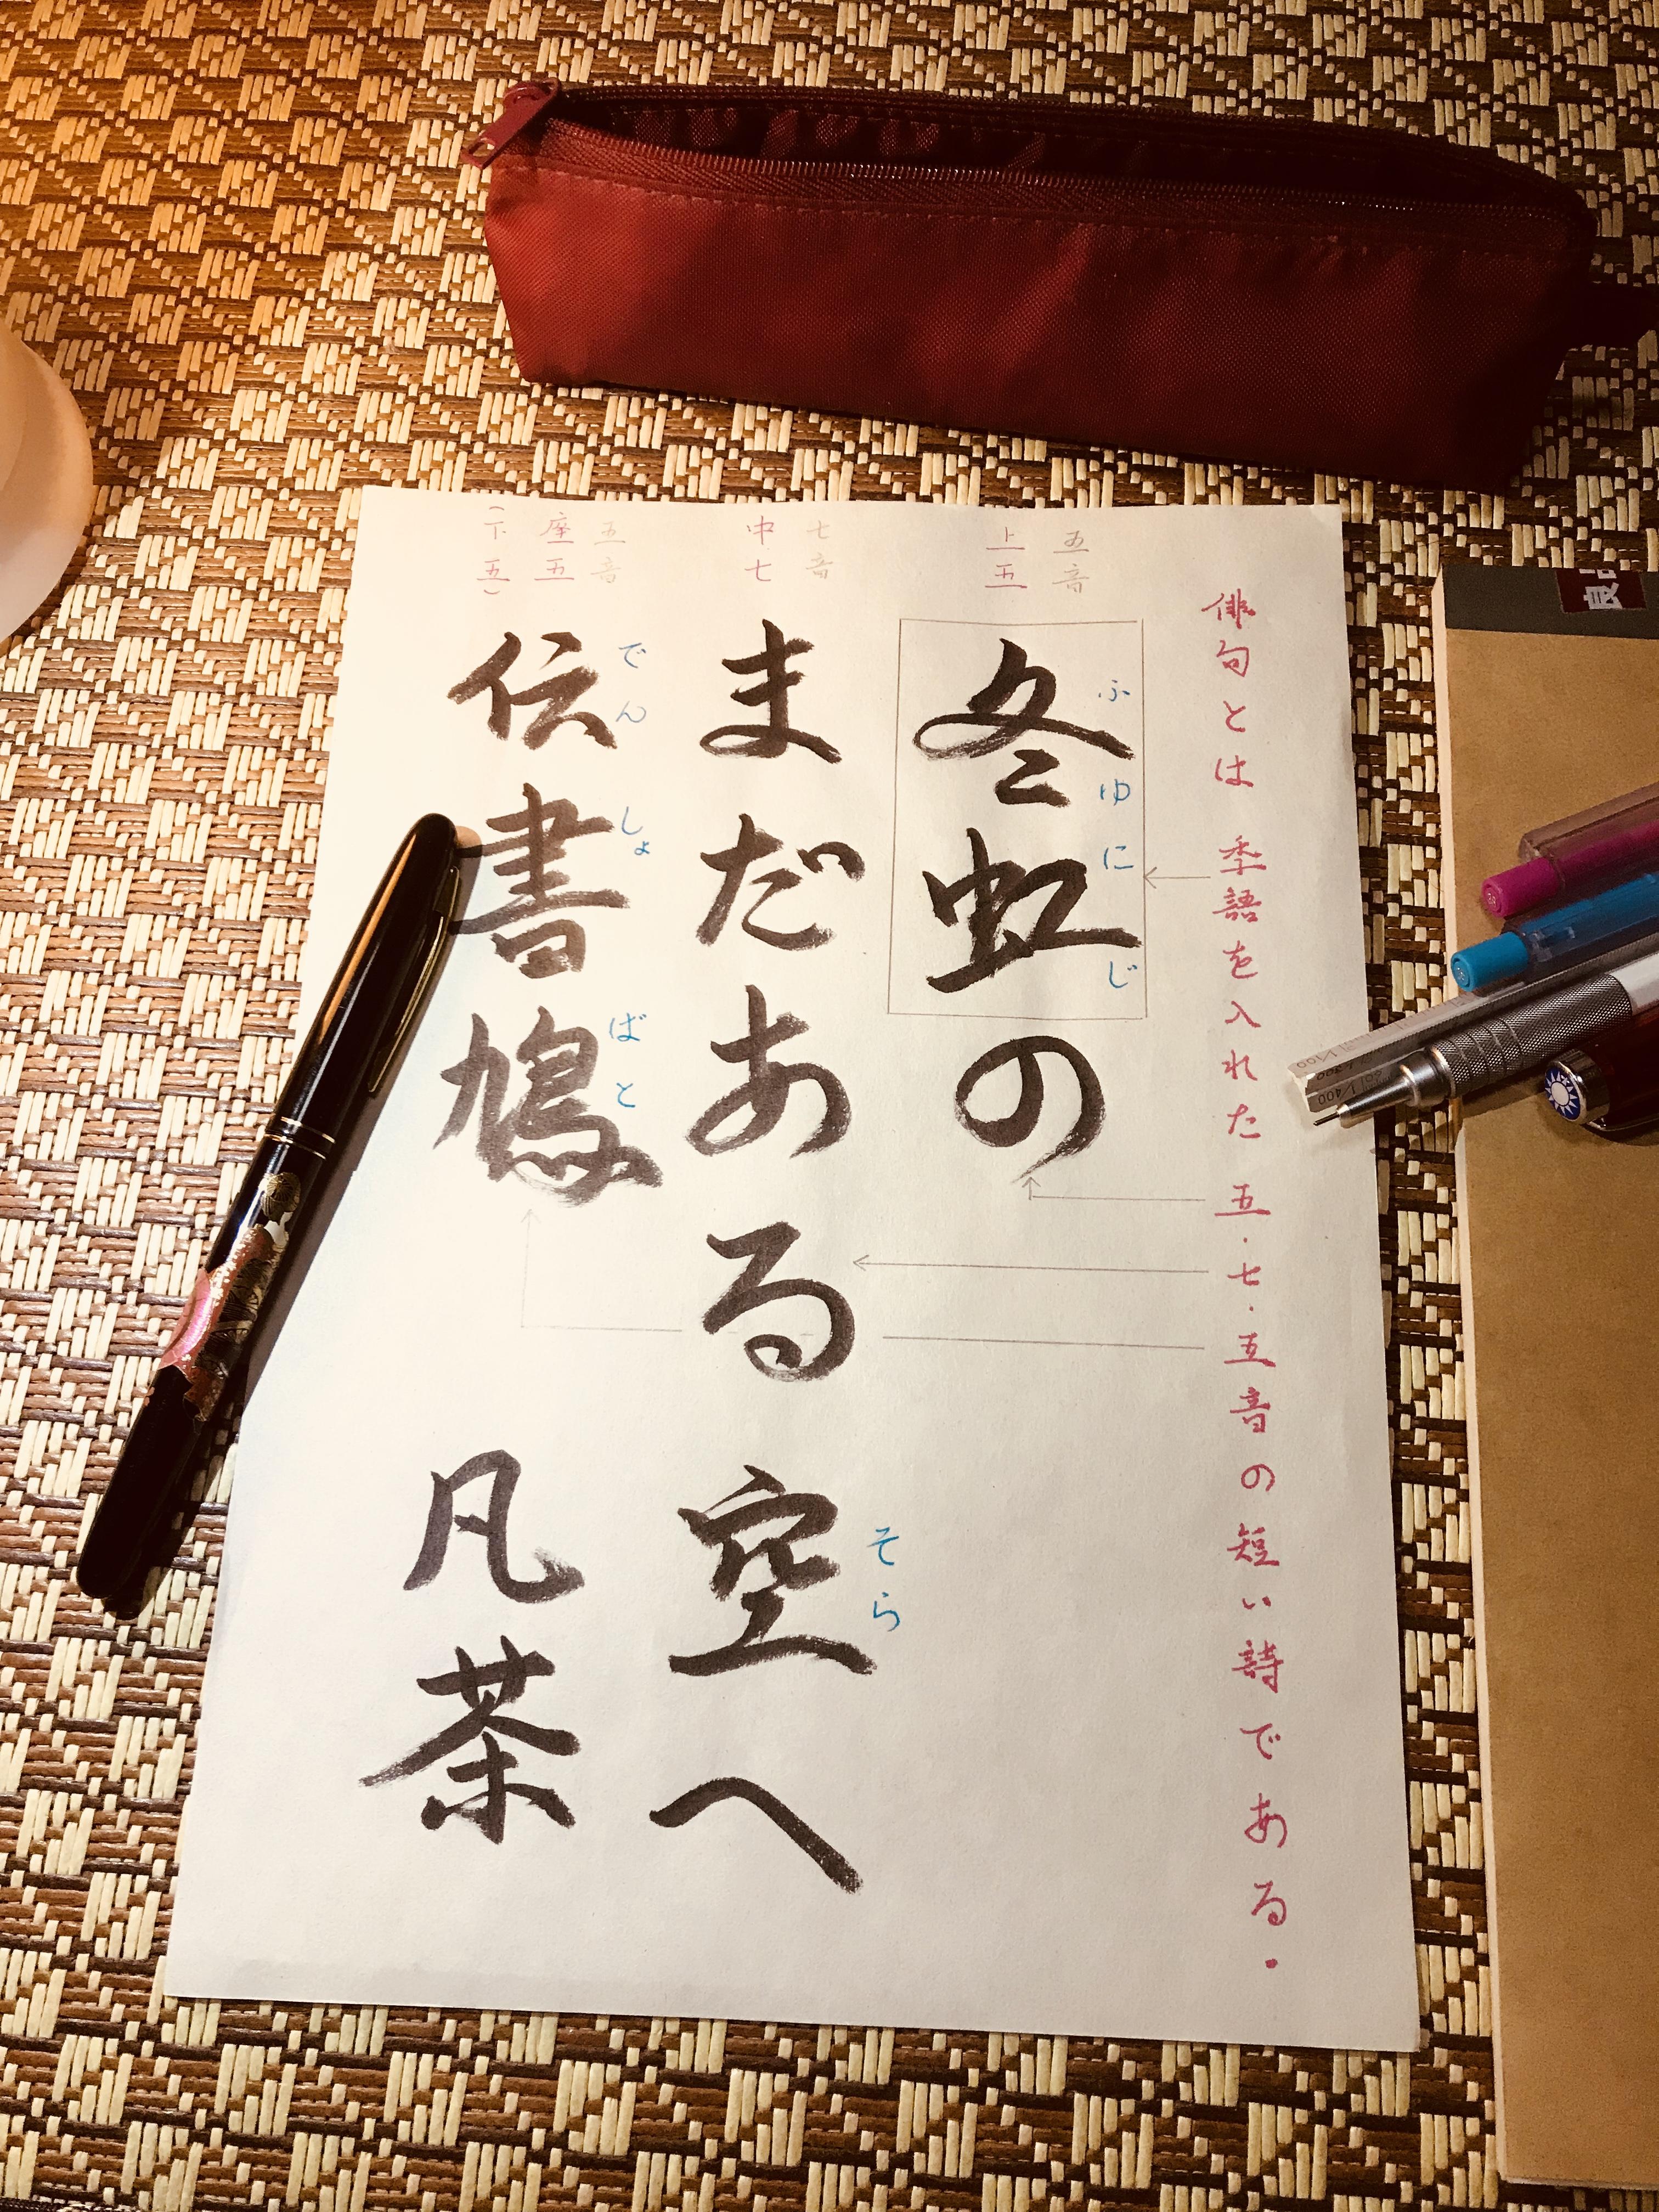 俳句とは 季語を入れた 五・七・五音の短い詩である.
五音
上五
ふゆにじ
冬虹の
七音
中七
そら
まだある空へ
五音
座五
(下五)
でんしょばと
伝書鳩
凡茶
1/100
1/400